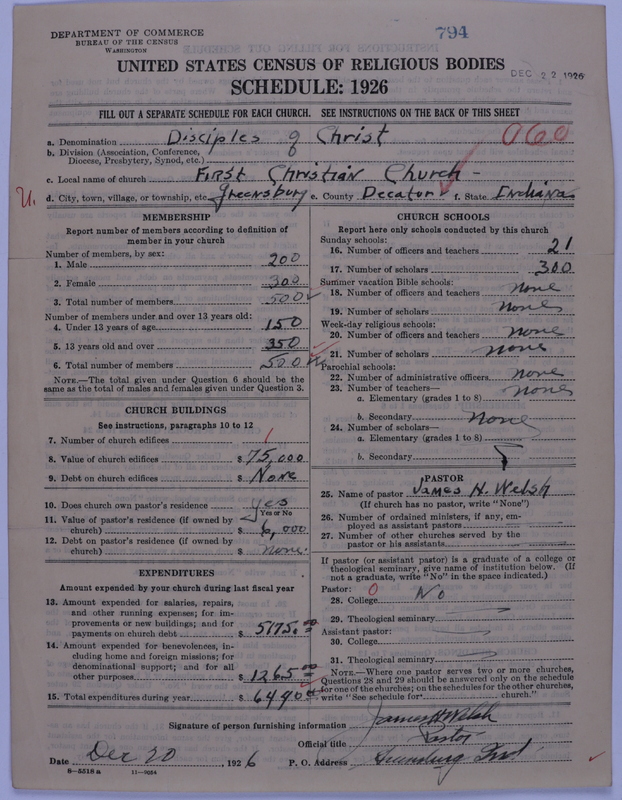 DEPARTMENT OF COMMERCE
BUREAU OF THE CENSUS
WASHINGTON
794
UNITED STATES CENSUS OF RELIGIOUS BODIES
DEC 22 1926
SCHEDULE: 1926
FILL OUT A SEPARATE SCHEDULE FOR EACH CHURCH. SEE INSTRUCTIONS ON THE BACK OF THIS SHEET
a. Denomination Disciples of Christ 060
b. Division (Association, Conference,
Diocese, Presbytery, Synod, etc.)
c. Local name of church First Christian Church -
U. d. City, town, village, or township, etc. Greensburg e. County Decator f. State Indiana
MEMBERSHIP
Report number of members according to definition of
member in your church
Number of members, by sex:
1. Male 200
2. Female 300
3. Total number of members 500
Number of members under and over 13 years old:
4. Under 13 years of age 150
5. 13 years old and over 350
6. Total number of members 500
NOTE.—The total given under Question 6 should be the
same as the total of males and females given under Question 3.
CHURCH BUILDINGS
See instructions, paragraphs 10 to 12
7. Number of church edifices 1
8. Value of church edifices $ 75,000
9. Debt on church edifices $ None
10. Does church own pastor's residence Yes
Yes or No
11. Value of pastor's residence (if owned by
church) $ 6,000
12. Debt on pastor's residence (if owned by
church) $ none.
EXPENDITURES
Amount expended by your church during last fiscal year
13. Amount expended for salaries, repairs,
and other running expenses; for im-
provements or new buildings; and for
payments on church debt $ 5175.00
14. Amount expended for benevolences, in-
cluding home and foreign missions; for
denominational support; and for all
other purposes $ 1265.00
15. Total expenditures during year $ 6440.00
CHURCH SCHOOLS
Report here only schools conducted by this church
Sunday schools:
16. Number of officers and teachers 21
17. Number of scholars 300
Summer vacation Bible schools:
18. Number of officers and teachers none
19. Number of scholars none
Week-day religious schools:
20. Number of officers and teachers none
21. Number of scholars none
Parochial schools:
22. Number of administrative officers none
23. Number of teachers—
a. Elementary (grades 1 to 8) none
b. Secondary none
24. Number of scholars—
a. Elementary (grades 1 to 8)
b. Secondary
PASTOR
25. Name of pastor James H. Welsh
(If church has no pastor, write "None")
26. Number of ordained ministers, if any, em-
ployed as assistant pastors
27. Number of other churches served by the
pastor or his assistants
If pastor (or assistant pastor) is a graduate of a college or
theological seminary, give name of institution below. (If
not a graduate, write "No" in the space indicated.)
Pastor: 0
28. College No
29. Theological seminary
Assistant pastor:
30. College
31. Theological seminary
NOTE.—Where one pastor serves two or more churches,
Questions 28 and 29 should be answered only on the schedule
for one of the churches; on the schedules for the other churches,
write "See schedule for church."
Signature of person furnishing information James H Welsh
Official title Pastor
Date Dec 20 1926 P. O. Address Greensburg Ind
8—5518 a 11—9054